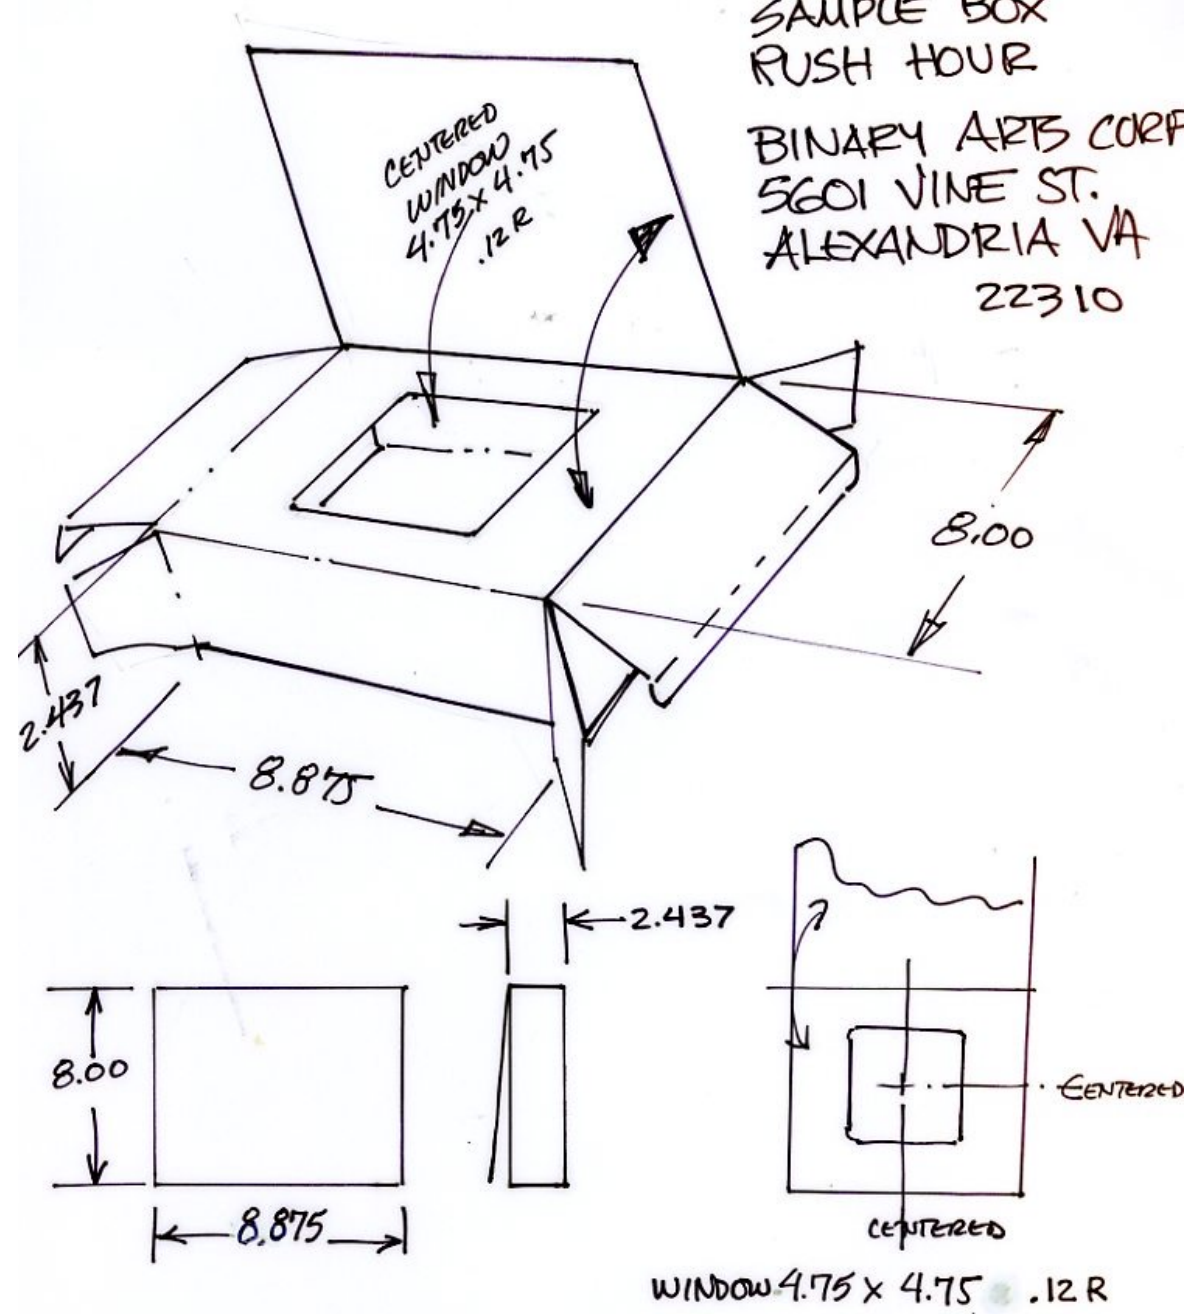 SAMPLE BOX
RUSH HOUR
BINARY ARTS CORP
5601 VINE ST.
ALEXANDRIA VA
22310
CENTERED
WINDOW
4.75 X 4.75
.12 R
8.00
2.437
8.875
2.437
8.00
8.875
CENTERED
CENTERED
WINDOW 4.75 X 4.75 .12 R